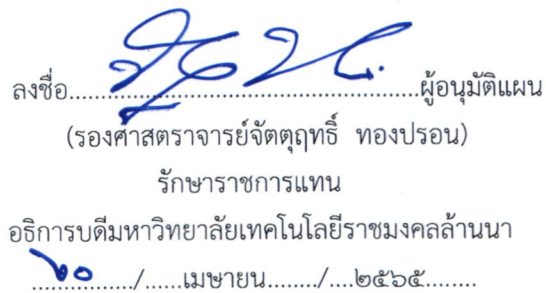 ลงชื่อ.....................................................ผู้อนุมัติแผน
(รองศาสตราจารย์จัตตุฤทธิ์ ทองปรอน)
รักษาราชการแทน
อธิการบดีมหาวิทยาลัยเทคโนโลยีราชมงคลล้านนา
................/......เมษายน......../....๒๕๖๕........